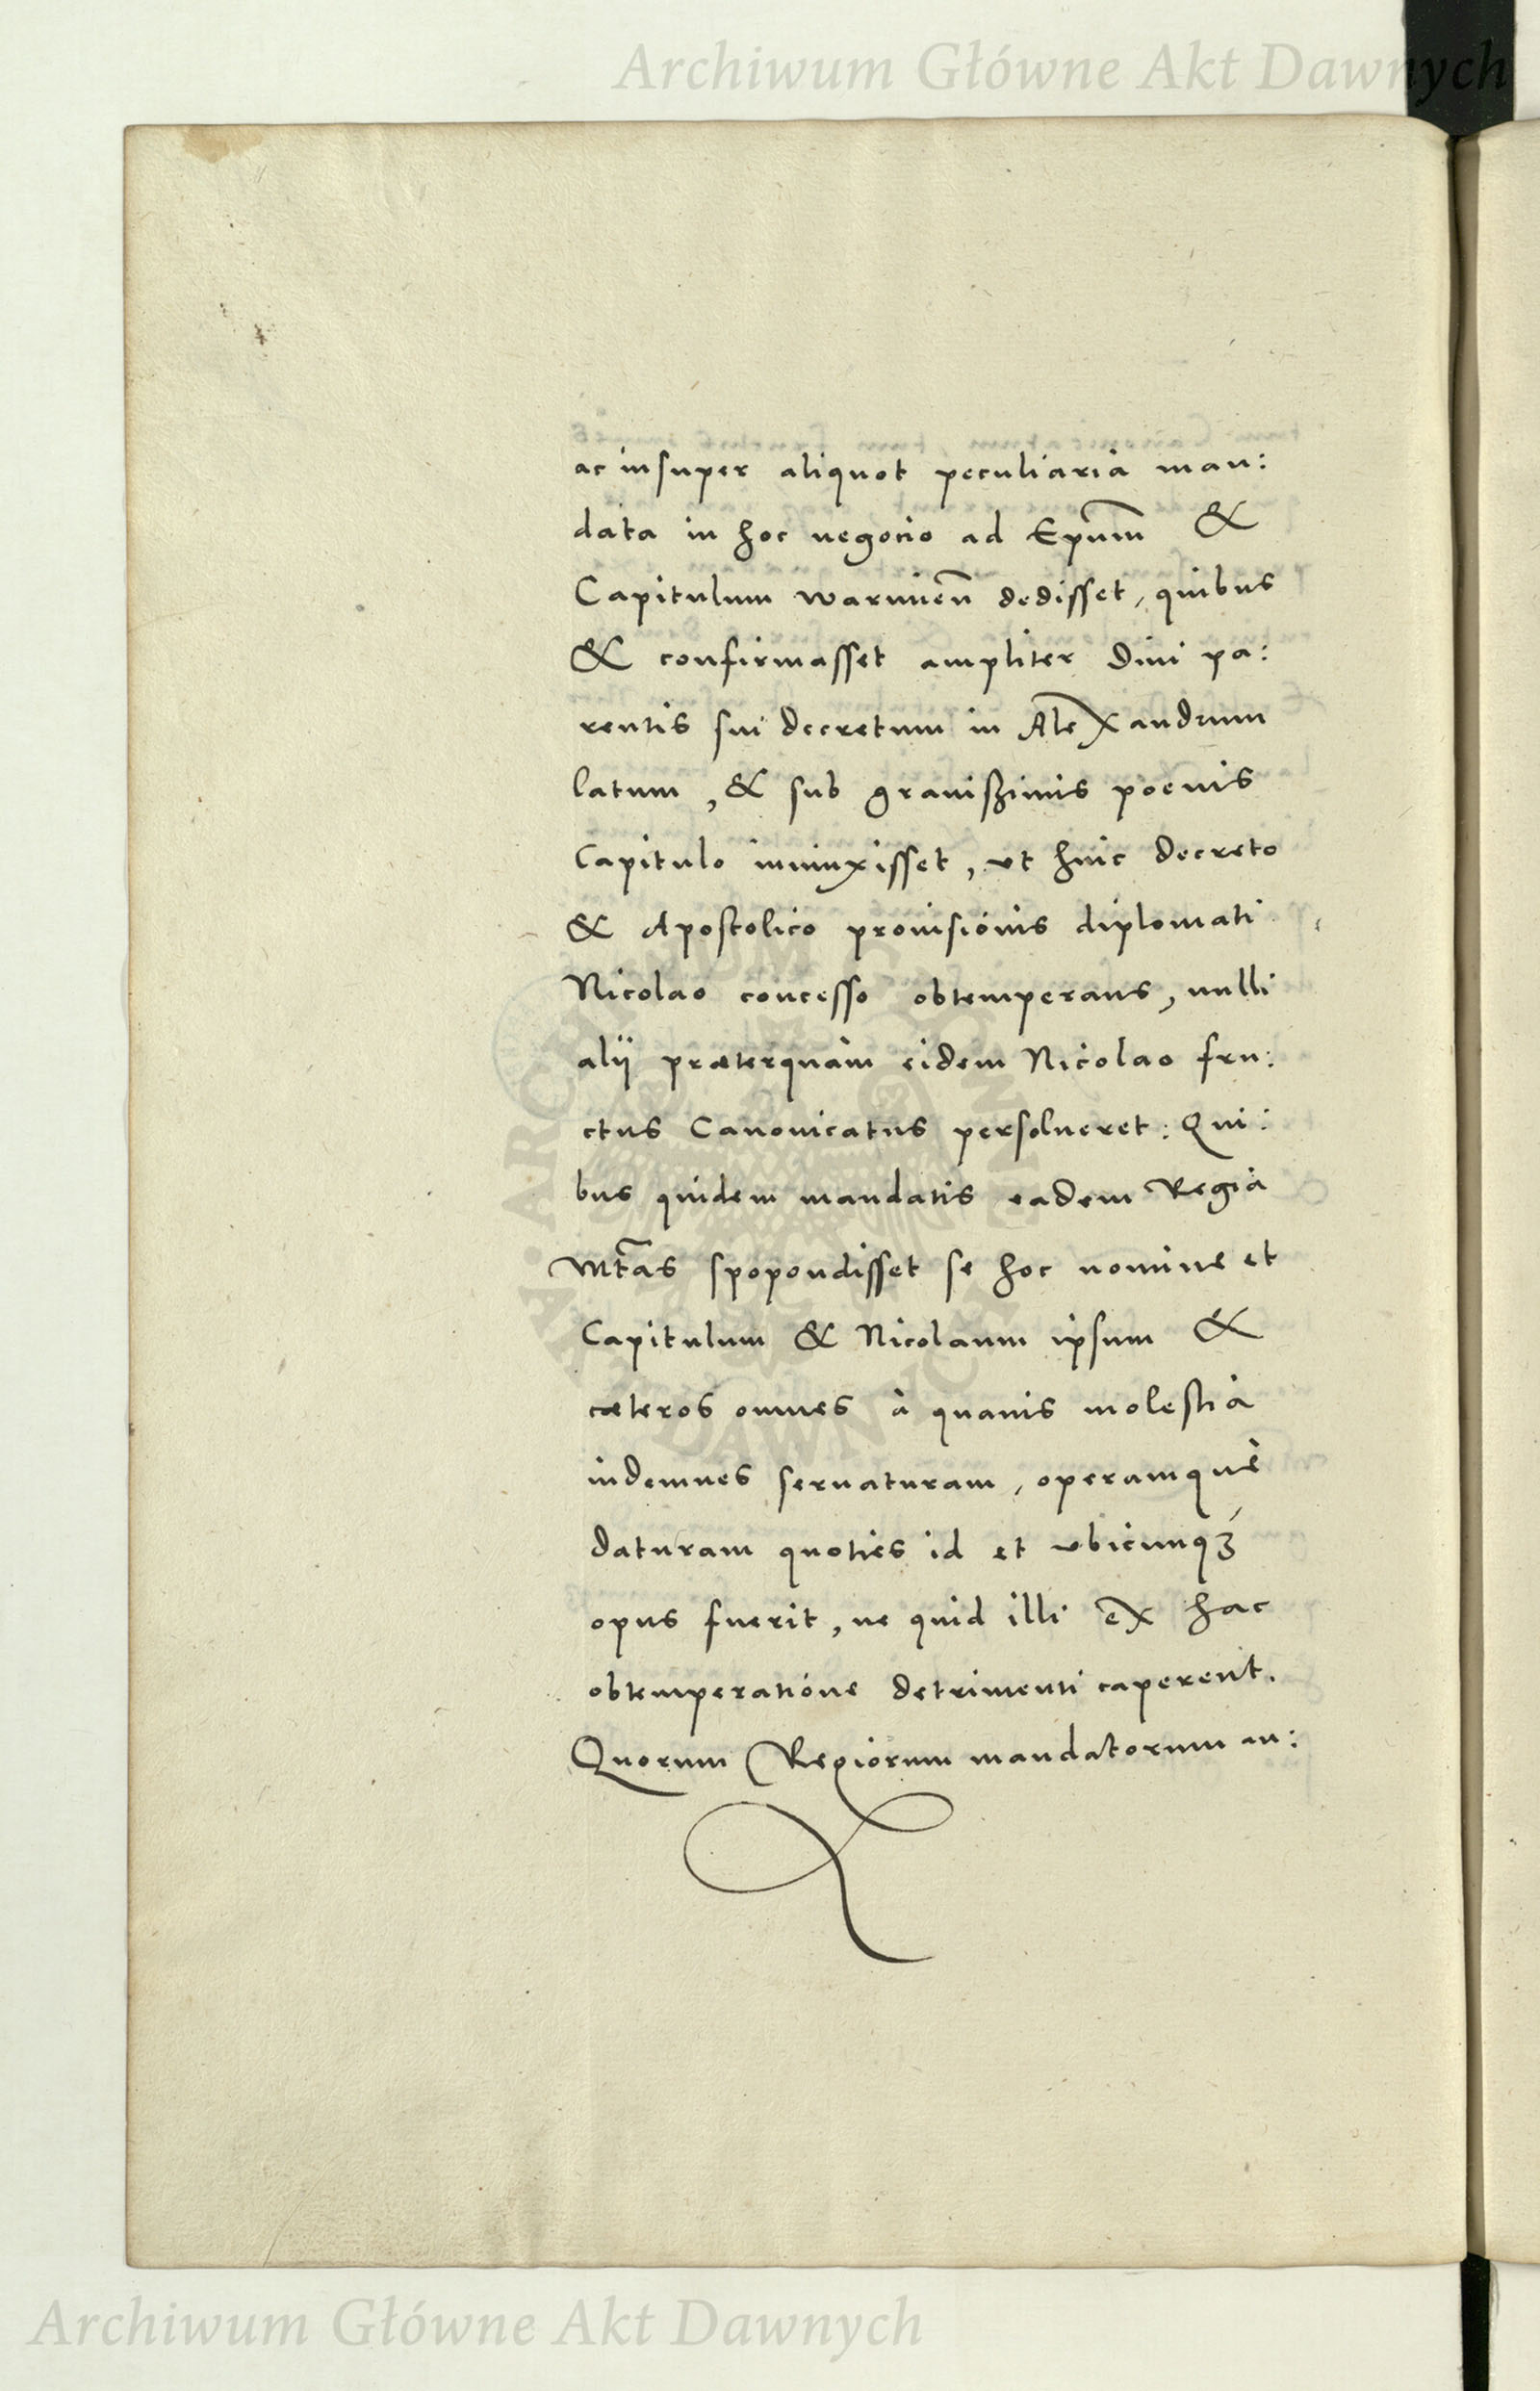 Archiwum Główne Akt Dawnych
ac insuper aliquot peculiaria man:
data in hoc negocio ad Ep̄um &
Capitulum warmien̄ dedisset, quibus
& confirmasset ampliter Diui pa:
rentis sui decretum in Alexandrum
latum, & sub grauiszimis poenis
Capitulo iniunxisset, vt huic decreto
& Apostolico prouisionis diplomati
Nicolao concesso obtemperans, nulli
alij præterquàm eidem Nicolao fru:
ctus Canonicatus persolueret: Qui:
bus quidem mandatis eadem Regia
Mt̄as spopondisset se hoc nomine et
Capitulum & Nicolaum ipsum &
cæteros omnes à quauis molestia
indemnes seruaturam, operamquè
daturam quoties id et vbicunqꝫ
opus fuerit, ne quid illi ex hac
obtemperatione detrimenti caperent.
Quorum Regiorum mandatorum au:
Archiwum Główne Akt Dawnych